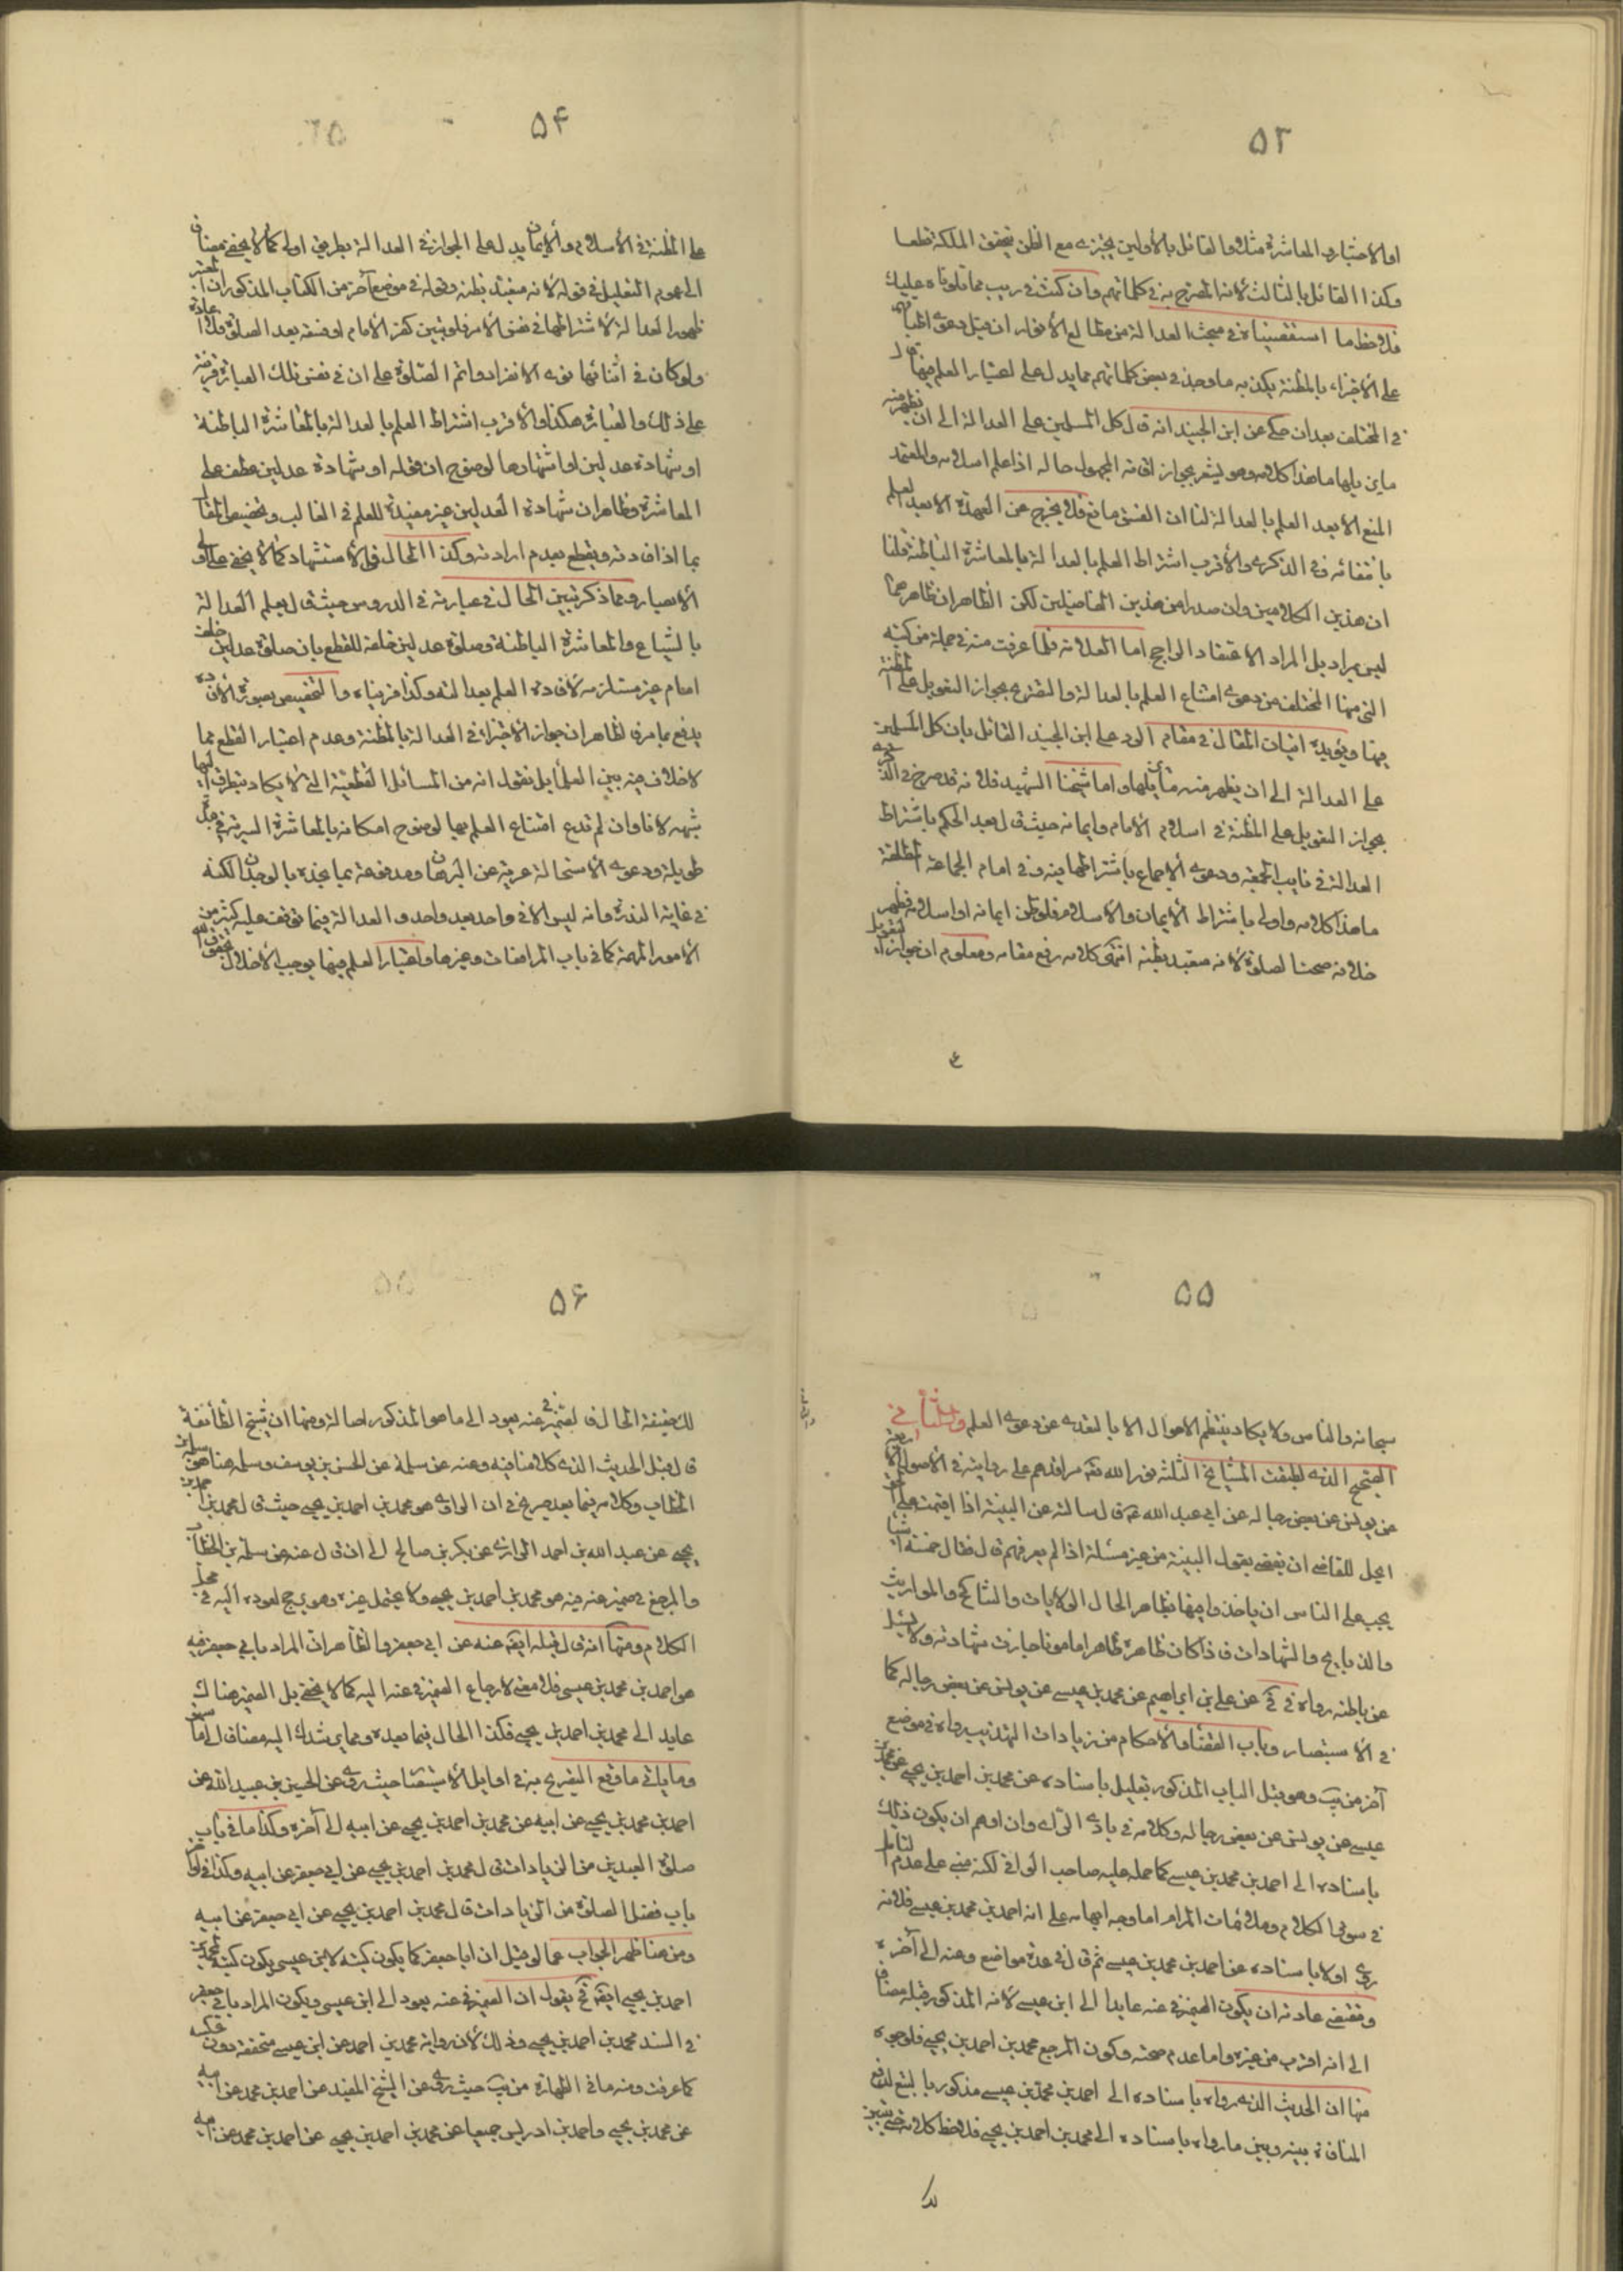 ۵۳
او الاختبار والمعاشرة مثلا والقائل بالأولين يجتزى مع الظن بتحقق الملكة قطعا
وكذا القائل بالثالث لانه المصرح به في كلماتهم وان كنت في ريب مما تلوناه عليك
فلاحظ ما استقصيناه في مبحث العدالة من مطالع الأنوار ان قيل دعوى اطباقهم
على الأجتزاء بالمظنة يكذبه ما وجد في بعض كلماتهم مما يدل على اعتبار العلم فيها قال
في المختلف بعد ان حكى عن ابن الجنيد انه قال كل المسلمين على العدالة الى ان يظهر منه
ما يزيلها ما هذا كلامه وهو يشعر بجواز امامة المجهول حاله اذا علم اسلامه والمعتمد
المنع الا بعد العلم بالعدالة لنا ان الفسق مانع فلا يخرج عن العهدة الا بعد العلم
بانتفائه وفي الذكرى والأقرب اشتراط العلم بالعدالة بالمعاشرة الباطنة قلنا
ان هذين الكلامين وان صدرا من هذين الفاضلين لكن الظاهر ان ظاهرهما
ليس بمراد بل المراد الاعتقاد الراجح اما العلامة فلما عرفت منه في جملة من كتبه
التي منها المختلف من دعوى امتناع العلم بالعدالة والتصريح بجواز التعويل على المظنة
فيها ويؤيده اتيان المقال في مقام الرد على ابن الجنيد القائل بان كل المسلمين
على العدالة الى ان يظهر منه ما يزيلها واما شيخنا الشهيد فلانه قد صرح في الذكرى
بجواز التعويل على المظنة في اسلام الأمام وايمانه حيث قال بعد الحكم باشتراط
العدالة في نايب الجمعة ودعوى الأجماع باشتراطها فيه وفي امام الجماعة المطلقة
ما هذا كلامه واولى باشتراط الأيمان والأسلام فلو ظن ايمانه او اسلامه فظهر
خلافه صحت الصلوة لانه متعبد بظنه انتهى كلامه رفع مقامه ومعلوم ان جواز التعويل
۵۴
على المظنة في الأسلام والأيمان يدل على الجواز في العدالة بطريق اولى كما لا يخفى مضافا
الى عموم التعليل في قوله لانه متعبد بظنه وقوله في موضع آخر من الكتاب المذكور ان المعتبر
ظهور العدالة لا اشتراطها في نفس الأمر فلو تبين كفر الأمام او فسقه بعد الصلوة فلا اعادة
ولو كان في اثنائها نوى الانفراد واتم الصلوة على ان في نفس تلك العبارة قرينة
على ذلك والعبارة هكذا والأقرب اشتراط العلم بالعدالة بالمعاشرة الباطنة
او شهادة عدلين او اشتهارها لوضوح ان قوله او شهادة عدلين عطف على
المعاشرة وظاهر ان شهادة العدلين غير مفيدة للعلم في الغالب وتخصيص المقال
بما اذا افادته ويقطع بعدم ارادته وكذا الحال في الأستشهاد كما لا يخفى على اولى
الأبصار ومما ذكر تبين الحال في عبارته في الدروس حيث قال يعلم العدالة
بالشياع والمعاشرة الباطنة وصلوة عدلين خلفه للقطع بان صلوة عدلين خلف
امام غير مستلزمة لافادة العلم بعدالته وكذا قريناه والتخصيص بصورة الأفادة
يدفع بما مر فالظاهر ان جواز الأجتزاء في العدالة بالمظنة وعدم اعتبار القطع مما
لا خلاف فيه بين العلماء بل نقول انه من المسائل القطعية التي لا يكاد يتطرق اليها
شبهة لانا وان لم ندع امتناع العلم بها لوضوح امكانه بالمعاشرة السرية في مدة
طويلة ودعوى الأستحالة عرية عن البرهان ومدفوعة بما يجده بالوجدان لكنه
في غاية الندرة وانه ليس الا في واحد بعد واحد والعدالة فيما توقف عليه كثير من
الأمور المهمة كما في باب المرافعات وغيرها واعتبار العلم فيها يوجب الأخلال بحقوق الله
۵۵
سبحانه والناس ولا يكاد ينتظم الاحوال الا بالتعدى عن دعوى العلم والثاني
الصحيح الذي اطبقت المشايخ الثلثة نور الله تعالى مراقدهم على روايته في الأصول الأربعة
عن يونس عن بعض رجاله عن ابي عبد الله ع قال سالته عن البينة اذا اقيمت على الحق
ايحل للقاضي ان يقضي بقول البينة من غير مسئلة اذا لم يعرفهم قال فقال خمسة اشياء
يجب على الناس ان ياخذوا فيها بظاهر الحال الولايات والتناكح والمواريث
والذبايح والشهادات فاذا كان ظاهره ظاهرا مامونا جازت شهادته ولا يسئل
عن باطنه رواه في في عن علي بن ابراهيم عن محمد بن عيسى عن يونس عن بعض رجاله كما
في الأستبصار وباب القضايا والأحكام من زيادات التهذيب ورواه في موضع
آخر من يب وهو قبل الباب المذكور بقليل باسناده عن محمد بن احمد بن يحيى عن محمد بن
عيسى عن يونس عن بعض رجاله وكلامه في بادى الرأى وان اوهم ان يكون ذلك
باسناده الى احمد بن محمد بن عيسى كما حمله عليه صاحب الوافي لكنه مبني على عدم التامل
في سوق الكلام وملاحظات المرام اما وجه ايهامه على انه احمد بن محمد بن عيسى فلانه
روى اولا باسناده عن احمد بن محمد بن عيسى ثم قال في عدة مواضع وعنه الى آخره
ومقتضى عادته ان يكون الضمير في عنه عايدا الى ابن عيسى لانه المذكور قبله مضافا
الى انه اقرب من غيره واما عدم صحته وكون المرجع محمد بن احمد بن يحيى فلوجوه
منها ان الحديث الذي رواه باسناده الى احمد بن محمد بن عيسى مذكور بالتبع لدفع
المنافاة بينه وبين ما رواه باسناده الى محمد بن احمد بن يحيى فلاحظ كلامه حتى يتبين
۵۶
لك حقيقة الحال فالضمير في عنه يعود الى ما هو المذكور اصالة ومنها ان شيخ الطائفة
قال قبل الحديث الذي كلامنا فيه وعنه عن سلمة عن الحسن بن يوسف وسلمة هنا هو سلمة بن
الخطاب وكلامه فيما بعد صريح في ان الراوى هو محمد بن احمد بن يحيى حيث قال محمد بن احمد بن
يحيى عن عبد الله بن احمد الرازى عن بكر بن صالح الى ان قال عنه عن سلمة بن الخطاب
والمرجع في ضمير عنه فيه هو محمد بن احمد بن يحيى ولا يحتمل غيره وهو يرجح لعوده اليه في محل
الكلام ومنها انه قال قبله ايضا عنه عن ابي جعفر والظاهر ان المراد بابي جعفر فيه
هو احمد بن محمد بن عيسى فلا معنى لارجاع الضمير في عنه اليه كما لا يخفى بل الضمير هناك
عايد الى محمد بن احمد بن يحيى فكذا الحال فيما بعده ومما يرشدك اليه مضافا الى ما سبق
وما ياتي ما وقع التصريح به في اوايل الأستبصار حيث روى عن الحسين بن عبيد الله عن
احمد بن محمد بن يحيى عن ابيه عن محمد بن احمد بن يحيى عن ابيه الى آخره وكذا ما في باب
صلوة العيدين من الزيادات قال محمد بن احمد بن يحيى عن ابي جعفر عن ابيه وكذا في اواخر
باب فضل الصلوة من الزيادات قال محمد بن احمد بن يحيى عن ابي جعفر عن ابيه
ومن هنا ظهر الجواب عما لو قيل ان ابا جعفر كما يكون كنية لابن عيسى يكون كنية لمحمد بن
احمد بن يحيى ايضا فح يقول ان الضمير في عنه يعود الى ابن عيسى ويكون المراد بابي جعفر
في السند محمد بن احمد بن يحيى وذلك لان رواية محمد بن احمد عن ابن عيسى متحققة دون عكسه
كما عرفت ومنه ما في الطهارة من يب حيث روى عن الشيخ المفيد عن احمد بن محمد عن ابيه
عن محمد بن يحيى واحمد بن ادريس جميعا عن محمد بن احمد بن يحيى عن احمد بن محمد عن ابيه